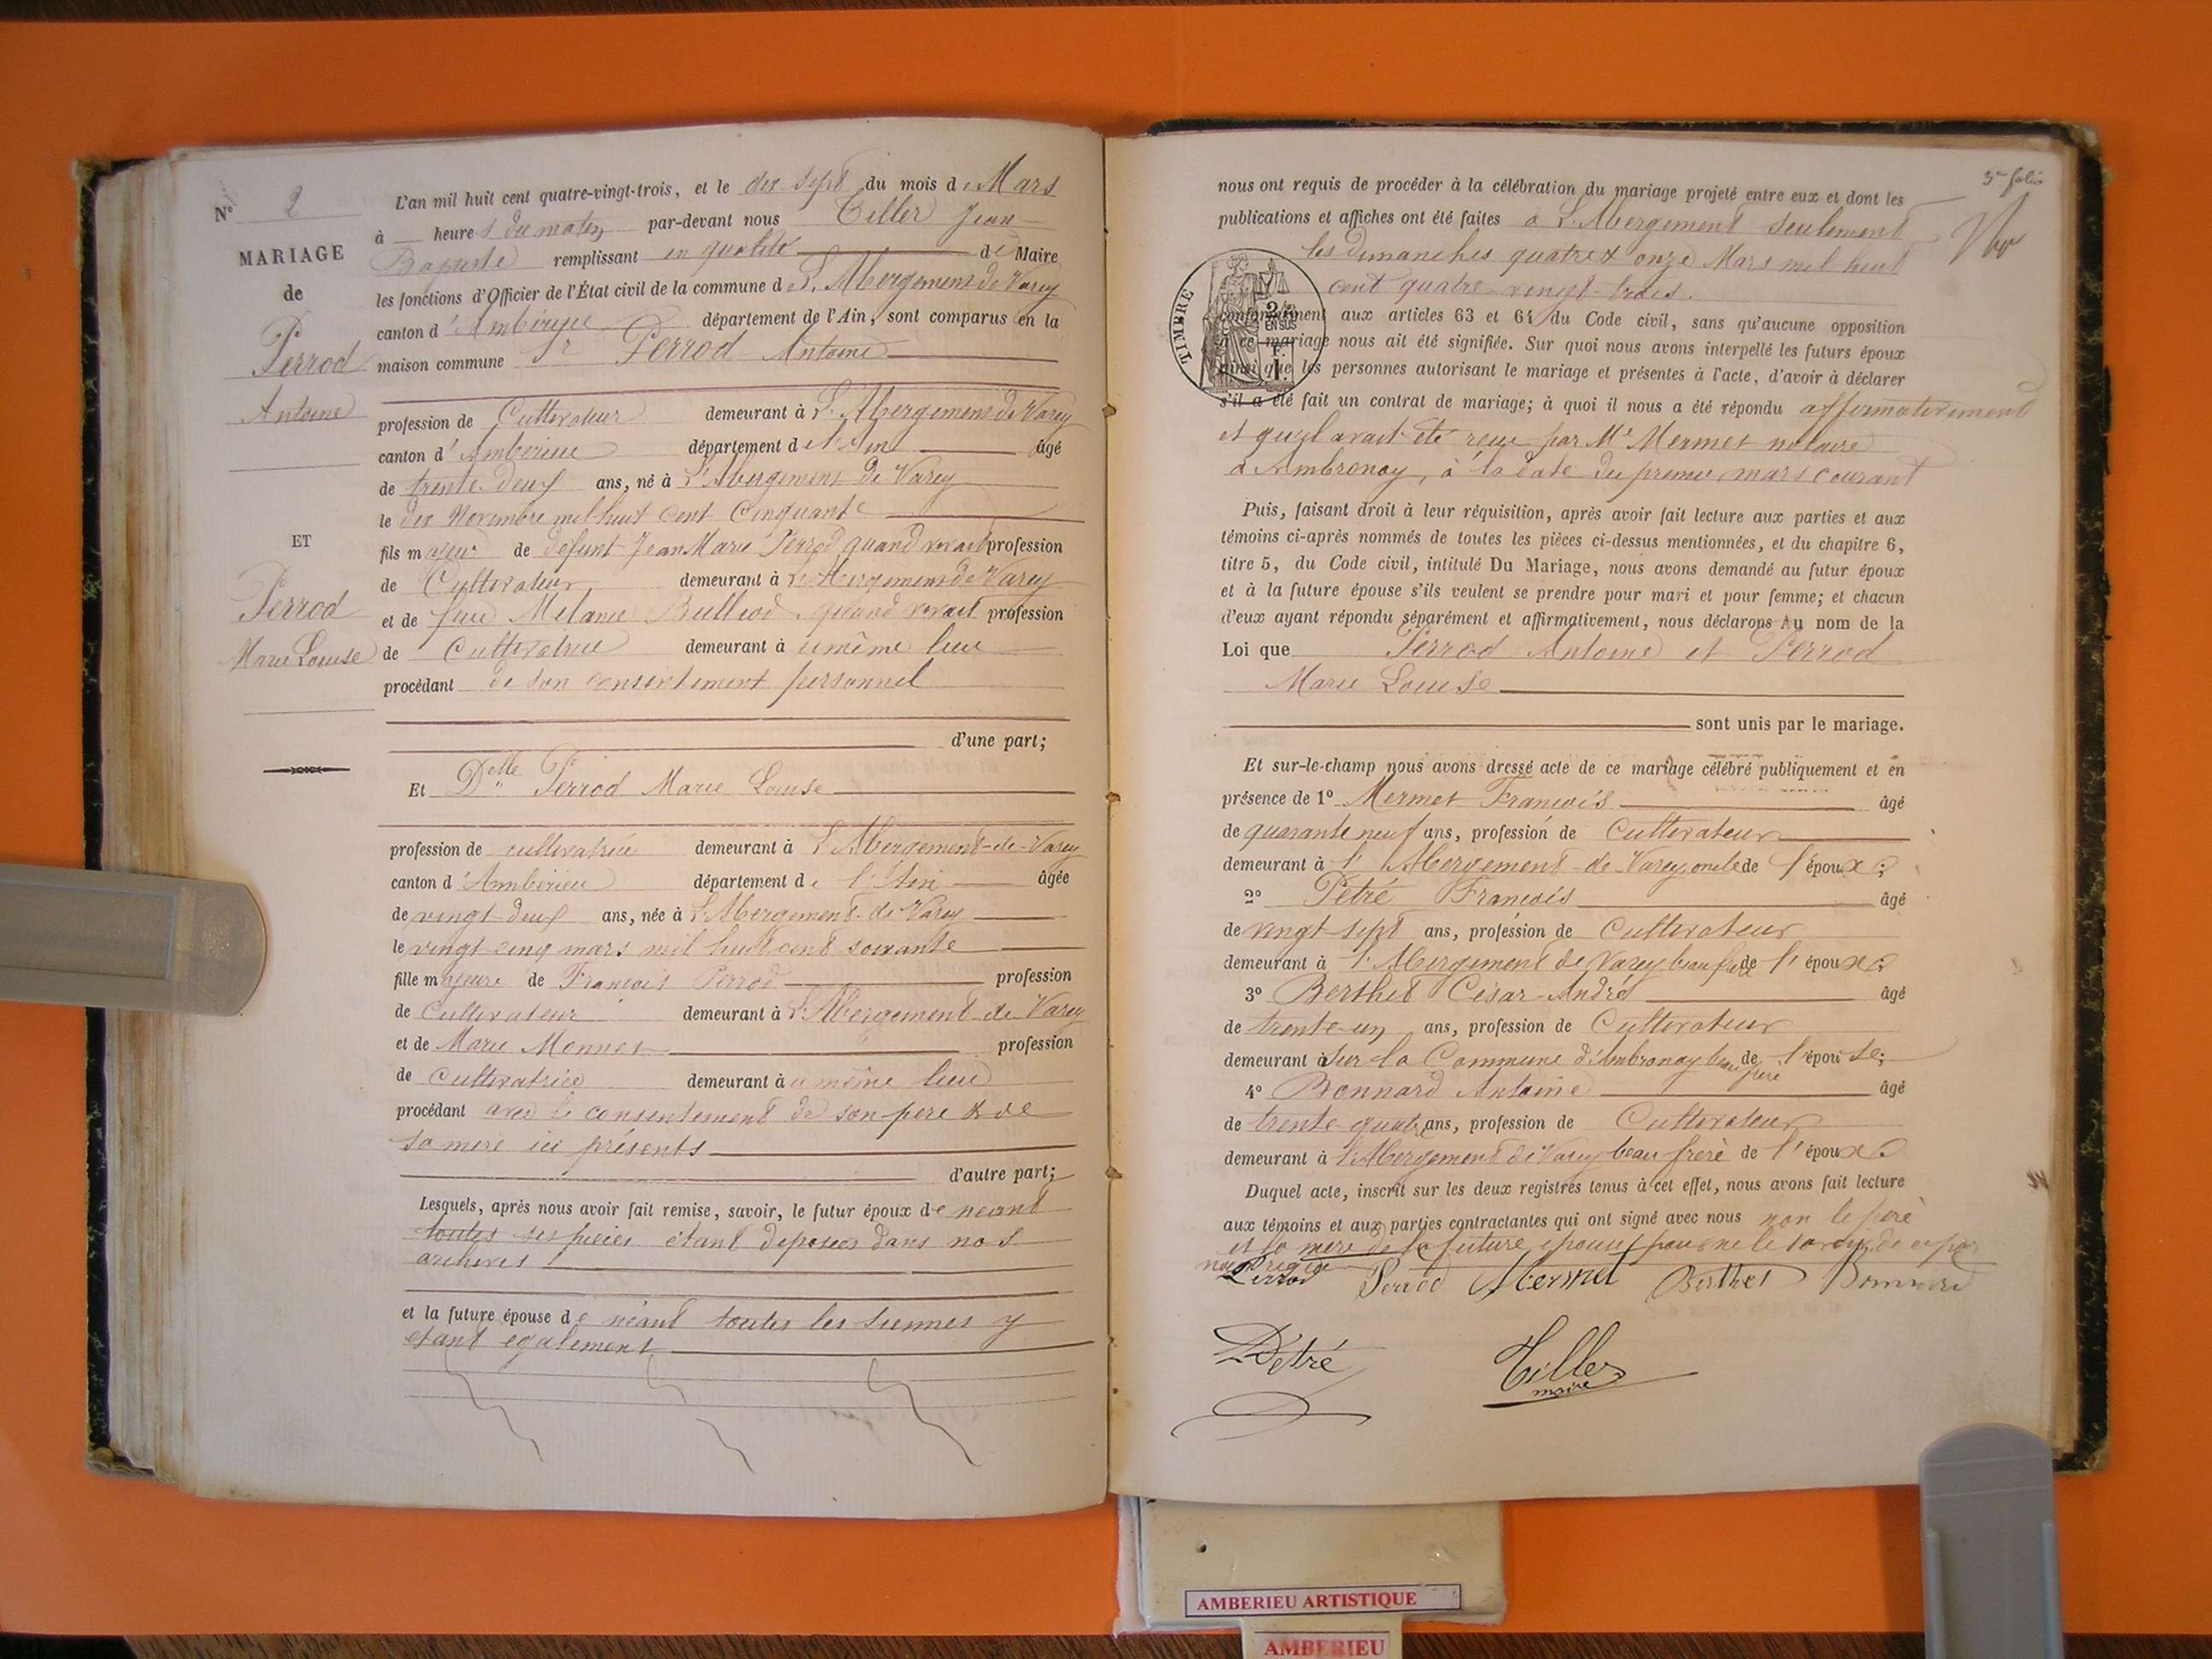 N° 2
MARIAGE
de
Perrod
Antoine
ET
Perrod
Marie Louise
L'an mil huit cent quatre-vingt-trois, et le dix sept du mois de Mars
à heures du matin par-devant nous Tiller Jean
Baptiste remplissant en qualité de Maire
les fonctions d'Officier de l'État civil de la commune de L'Abergement de Varey
canton d'Ambérieu département de l'Ain, sont comparus en la
maison commune Sr Perrod Antoine
profession de Cultivateur demeurant à L'Abergement de Varey
canton d'Ambérieu département de l'Ain âgé
de trente deux ans, né à L'Abergement de Varey
le dix Novembre mil huit cent Cinquante
fils majeur de défunt Jean Marie Perrod quand vivait profession
de Cultivateur demeurant à L'Abergement de Varey
et de feue Mélanie Bulliod quand vivait profession
de Cultivatrice demeurant à même lieu
procédant de son consentement personnel
d'une part;
Et Delle Perrod Marie Louise
profession de cultivatrice demeurant à L'Abergement-de-Varey
canton d'Ambérieu département de l'Ain âgée
de vingt deux ans, née à L'Abergement-de-Varey
le vingt-cinq mars mil huit cent soixante
fille majeure de François Perrod profession
de Cultivateur demeurant à L'Abergement-de-Varey
et de Marie Monnet profession
de Cultivatrice demeurant à même lieu
procédant avec le consentement de son père & de
sa mère ici présents
d'autre part;
Lesquels, après nous avoir fait remise, savoir, le futur époux de néant
toutes ses pièces étant déposées dans nos
archives
et la future épouse de néant toutes les siennes y
étant également
3me folio
nous ont requis de procéder à la célébration du mariage projeté entre eux et dont les
publications et affiches ont été faites à L'Abergement seulement
les dimanches quatre & onze Mars mil huit
cent quatre vingt-trois.
TIMBRE
2/10
EN SUS
conformément aux articles 63 et 64 du Code civil, sans qu'aucune opposition
à ce mariage nous ait été signifiée. Sur quoi nous avons interpellé les futurs époux
ainsi que les personnes autorisant le mariage et présentes à l'acte, d'avoir à déclarer
s'il a été fait un contrat de mariage; à quoi il nous a été répondu affirmativement
et qu'il avait été reçu par Me Mermet notaire
à Ambronay, à la date du premier mars courant
Puis, faisant droit à leur réquisition, après avoir fait lecture aux parties et aux
témoins ci-après nommés de toutes les pièces ci-dessus mentionnées, et du chapitre 6,
titre 5, du Code civil, intitulé Du Mariage, nous avons demandé au futur époux
et à la future épouse s'ils veulent se prendre pour mari et pour femme; et chacun
d'eux ayant répondu séparément et affirmativement, nous déclarons Au nom de la
Loi que Perrod Antoine et Perrod
Marie Louise
sont unis par le mariage.
Et sur-le-champ nous avons dressé acte de ce mariage célébré publiquement et en
présence de 1° Mermet François âgé
de quarante neuf ans, profession de Cultivateur
demeurant à l'Abergement-de-Varey, oncle de l'époux;
2° Pétré François âgé
de vingt-sept ans, profession de Cultivateur
demeurant à l'Abergement de Varey beau frère de l'époux;
3° Berthet César-André âgé
de trente-un ans, profession de Cultivateur
demeurant à sur la Commune d'Ambronay beau frère de l'épouse;
4° Bonnard Antoine âgé
de trente-quatre ans, profession de Cultivateur
demeurant à L'Abergement de Varey beau frère de l'époux
Duquel acte, inscrit sur les deux registres tenus à cet effet, nous avons fait lecture
aux témoins et aux parties contractantes qui ont signé avec nous non le père
et la mère de la future épouse pour ne le savoir de ce par
nous requis
Perrod Perrod Mermet Berthet Bonnard
Pétré Tiller
maire
AMBERIEU ARTISTIQUE
AMBERIEU